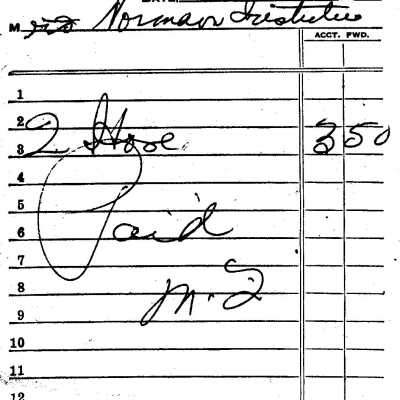 M Norman Institute
ACCT. FWD.
1
2
2 Hose 3 50
3
4
5
Paid
6
7
8
M. S.
9
10
11
12